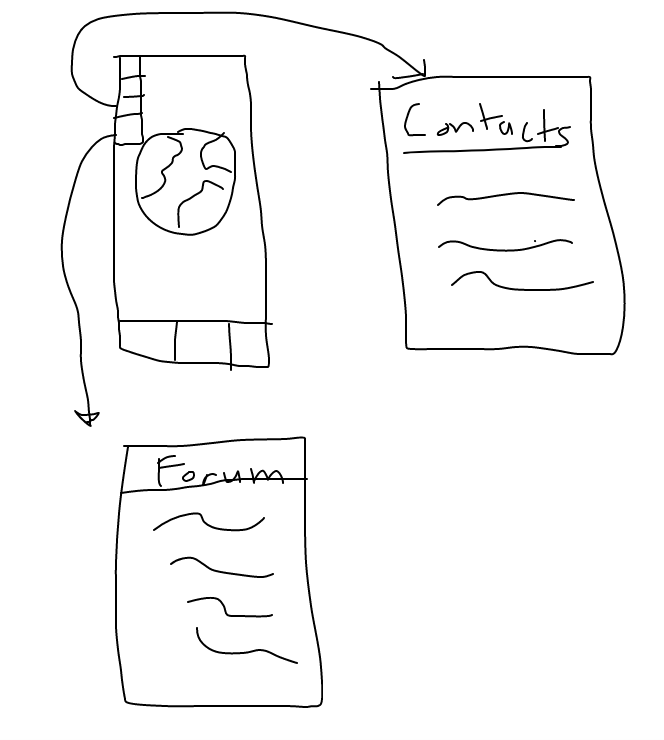 Contacts
Forum